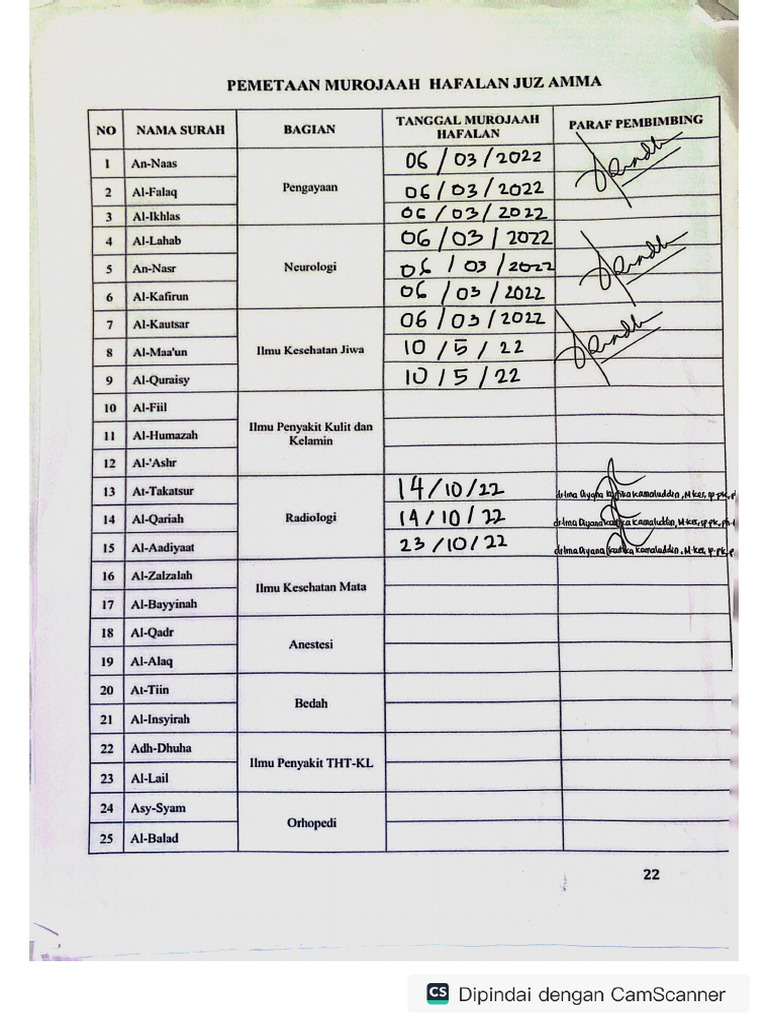 PEMETAAN MUROJAAH HAFALAN JUZ AMMA
NO NAMA SURAH BAGIAN TANGGAL MUROJAAH HAFALAN PARAF PEMBIMBING
1 An-Naas Pengayaan 06/03/2022
2 Al-Falaq 06/03/2022
3 Al-Ikhlas 06/03/2022
4 Al-Lahab Neurologi 06/03/2022
5 An-Nasr 06/03/2022
6 Al-Kafirun 06/03/2022
7 Al-Kautsar Ilmu Kesehatan Jiwa 06/03/2022
8 Al-Maa'un 10/5/22
9 Al-Quraisy 10/5/22
10 Al-Fiil Ilmu Penyakit Kulit dan Kelamin
11 Al-Humazah
12 Al-'Ashr
13 At-Takatsur Radiologi 14/10/22 dr Irna Diyana Kartika Kamaluddin, M.Kes, Sp.PK,
14 Al-Qariah 14/10/22 dr Irna Diyana Kartika Kamaluddin, M.Kes, Sp.PK,
15 Al-Aadiyaat 23/10/22 dr Irna Diyana Kartika Kamaluddin, M.Kes, Sp.PK,
16 Al-Zalzalah Ilmu Kesehatan Mata
17 Al-Bayyinah
18 Al-Qadr Anestesi
19 Al-Alaq
20 At-Tiin Bedah
21 Al-Insyirah
22 Adh-Dhuha Ilmu Penyakit THT-KL
23 Al-Lail
24 Asy-Syam Orhopedi
25 Al-Balad
22
CS Dipindai dengan CamScanner